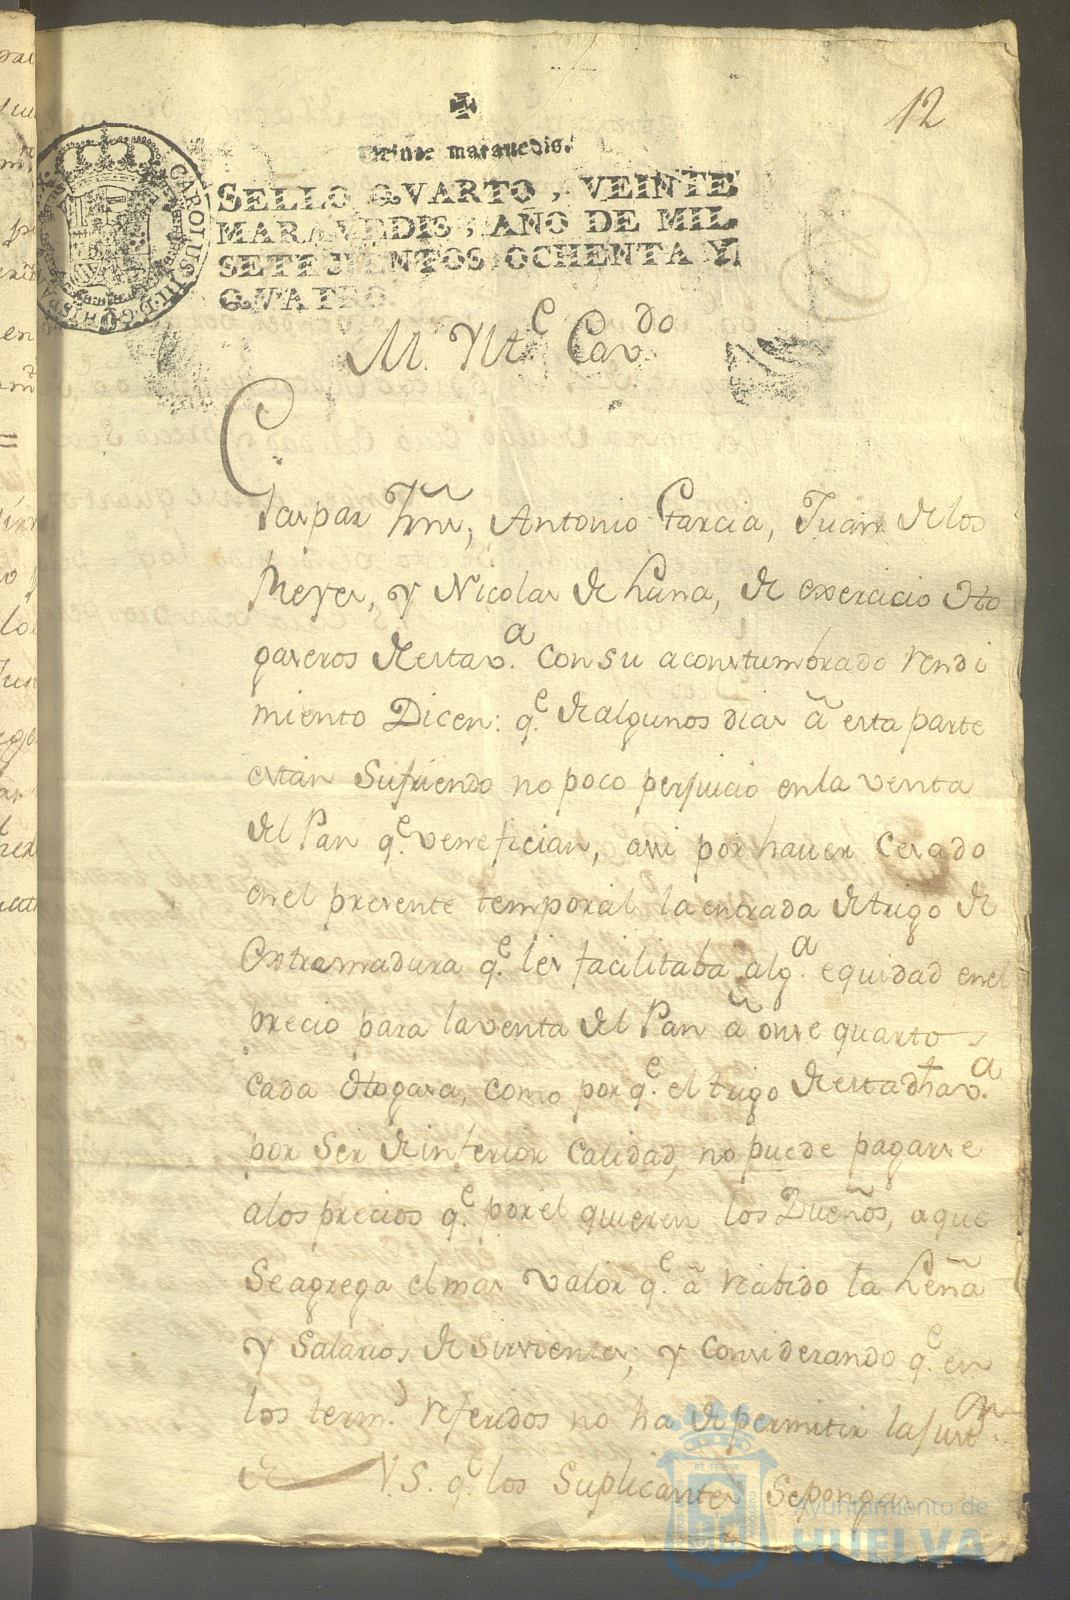 12
Veinte maravedis.
SELLO QVARTO, VEINTE
MARAVEDIS, AÑO DE MIL
SETECIENTOS OCHENTA Y
QVATRO.
CAROLUS III D G HISPA
M. Ylt.e Cav.do
Gaspar Hrnz, Antonio Garcia, Juan de los
Reyes, y Nicolas de Luna, de exercicio Ho
gaseros de esta v.a con su acostumbrado rendi
miento Dicen: q.e de algunos dias â esta parte
estan sufriendo no poco perjuicio en la venta
del Pan q.e venefician, assi por haver Cesado
en el presente temporal la entrada de trigo de
Extremadura q.e les facilitaba alg.a equidad en el
precio para la venta del Pan â onse quartos
cada Hogasa, como por q.e el trigo de esta dha v.a
por ser de inferior Calidad, no puede pagarse
a los precios q.e por el quieren los Dueños, a que
se agrega el mas valor q.e â recibido la Leña
y Salarios de Sirvientes; y considerando q.e en
los term.s referidos no ha de permitir la just.n
de V.S. q.e los Suplicantes se pongan
Ayuntamiento de
HUELVA